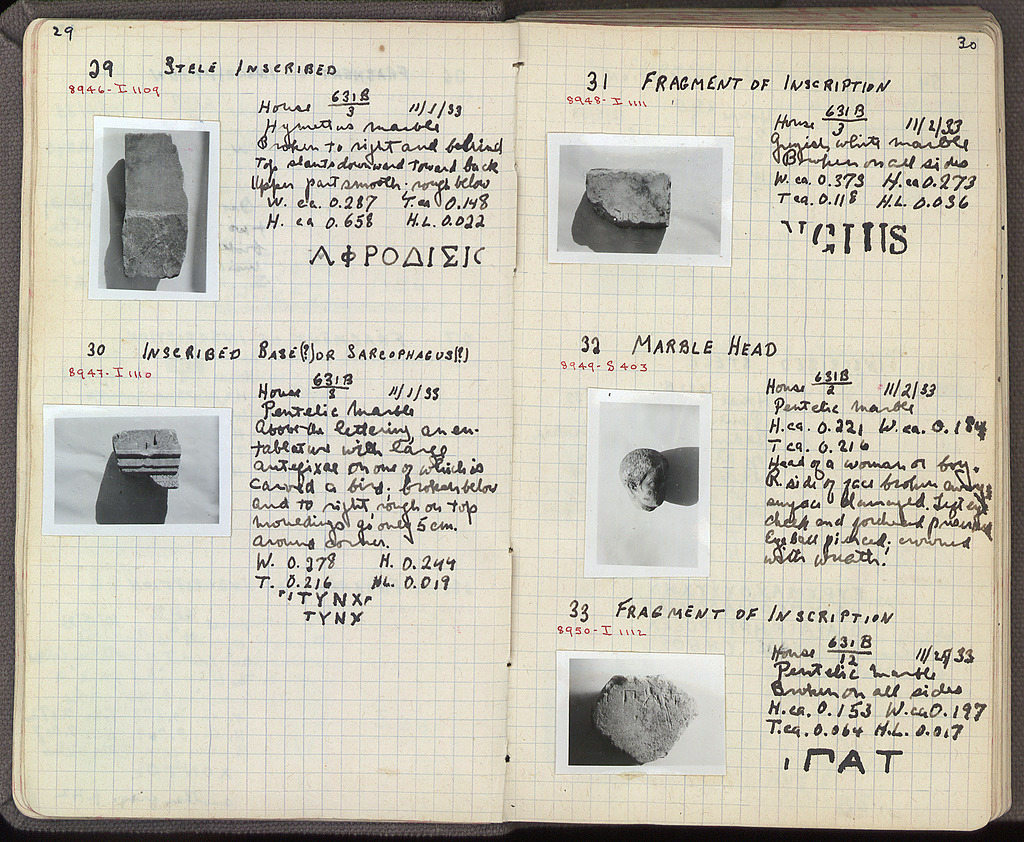 29
29 STELE INSCRIBED
8946-I 1109
House 631B/3 11/1/33
Hymettus marble
Broken to right and behind
Top slants downward toward back
Upper part smooth: rough below
W. ca. 0.287 T. ca. 0.148
H. ca 0.658 H.L. 0.022
ΑΦΡΟΔΙΣΙ
30 INSCRIBED BASE(?) OR SARCOPHAGUS(?)
8947-I 1110
House 631B/3 11/1/33
Pentelic marble
Above the lettering an en-
tablature with large
antefixae on one of which is
carved a bird; broken below
and to right, rough on top
mouldings go only 5 cm.
around corner.
W. 0.278 H. 0.244
T. 0.216 HL. 0.019
ΙΤΥΝΧ
ΤΥΝΧ
30
31 FRAGMENT OF INSCRIPTION
8948-I 1111
House 631B/3 11/2/33
Greyish white marble
Broken on all sides
W. ca. 0.373 H. ca 0.273
T ca. 0.118 H.L. 0.036
32 MARBLE HEAD
8949-S 403
House 631B/2 11/2/33
Pentelic marble
H. ca. 0.221 W. ca. 0.184
T ca. 0.216
Head of a woman or boy.
R. side of face broken away
surface damaged. Left eye
cheek and forehead preserved
Eyeball pierced; crowned
with wreath.
33 FRAGMENT OF INSCRIPTION
8950-I 1112
House 631B/12 11/29/33
Pentelic marble
Broken on all sides
H. ca. 0.153 W. ca 0.197
T. ca. 0.064 H.L. 0.017
ΓΑΤ